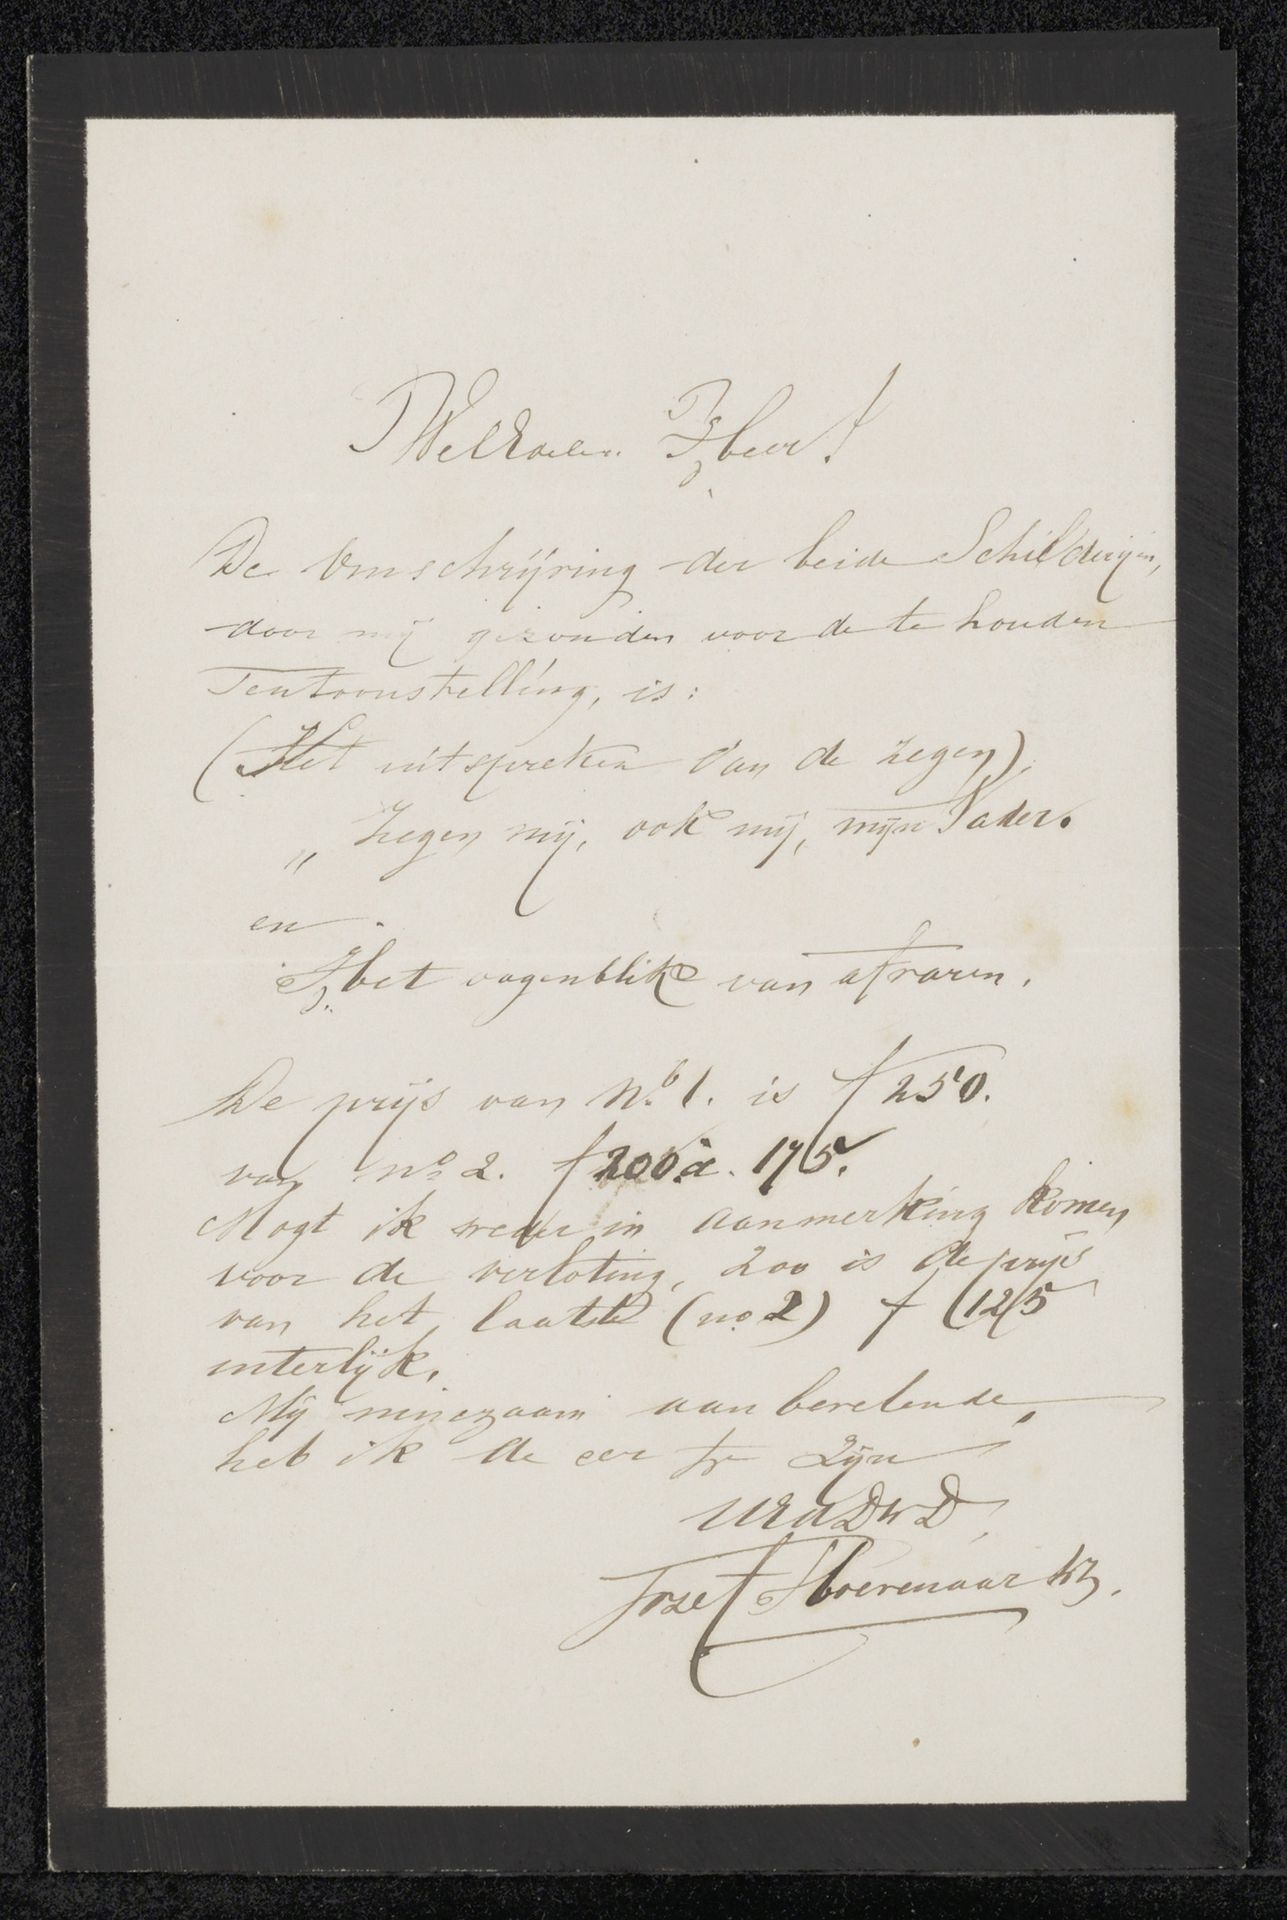 WelEdelen Heer!
De Omschrijving der beide Schilderijen,
door mij gezonden voor de te houden
Tentoonstelling, is:
(Het uitspreken van de zegen)
„ Zegen mij, ook mij, mijn Vader.
en
Het oogenblik van afvaren.
De prijs van No 1. is f 250.
van no 2. f 200 à 175.
Mogt ik weder in aanmerking komen
voor de verloting, zoo is de prijs
van het laatste (no 2) f 125
uiterlijk.
Mij minzaam aanbevelende,
heb ik de eer te zijn
UEdDwD,
Jozef Hoevenaar Wz.